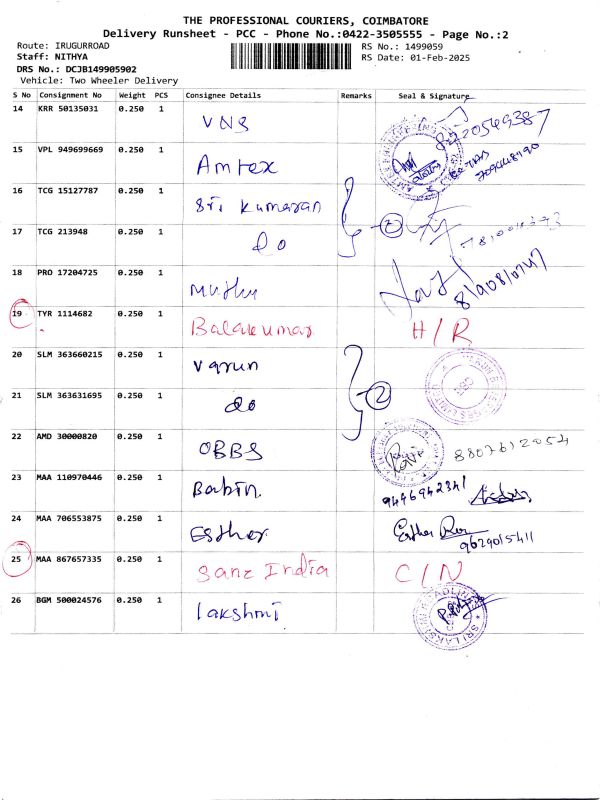 THE PROFESSIONAL COURIERS, COIMBATORE
Delivery Runsheet - PCC - Phone No.:0422-3505555 - Page No.:2
Route: IRUGURROAD
RS No.: 1499059
Staff: NITHYA
RS Date: 01-Feb-2025
DRS No.: DCJB149905902
Vehicle: Two Wheeler Delivery
S No Consignment No Weight PCS Consignee Details Remarks Seal & Signature
14 KRR 50135031 0.250 1 VNS
15 VPL 949699669 0.250 1 Amtex
16 TCG 15127787 0.250 1 Sri Kumaran
17 TCG 213948 0.250 1 do 2
18 PRO 17204725 0.250 1 Muthu
19 TYR 1114682 0.250 1 Balakumar H/R
20 SLM 363660215 0.250 1 Varun
21 SLM 363631695 0.250 1 do 2
22 AMD 30000820 0.250 1 OBBS 8807612054
23 MAA 110970446 0.250 1 Babin 9446942341
24 MAA 706553875 0.250 1 Esther Esther 9629015411
25 MAA 867657335 0.250 1 Sanz India C/N
26 BGM 500024576 0.250 1 Lakshmi